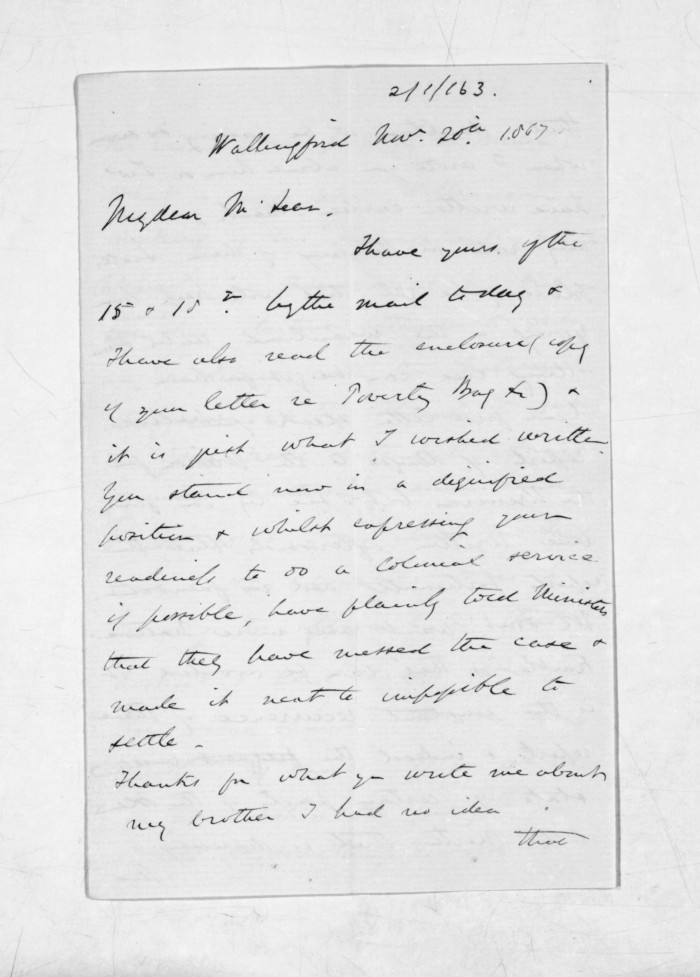 2/1/163.
Wallingford Novr. 20th. 1867
My dear McLean.
I have yours of the
15 & 18th by the mail today &
I have also read the enclosure (copy
of your letter re Poverty Bay &c) &
it is just what I wished written
You stand now in a dignified
position & whilst expressing your
readiness to do a Colonial service
if possible, have plainly told Ministers
that they have messed the case &
made it next to impossible to
settle -
Thanks for what you write me about
my brother I had no idea
that